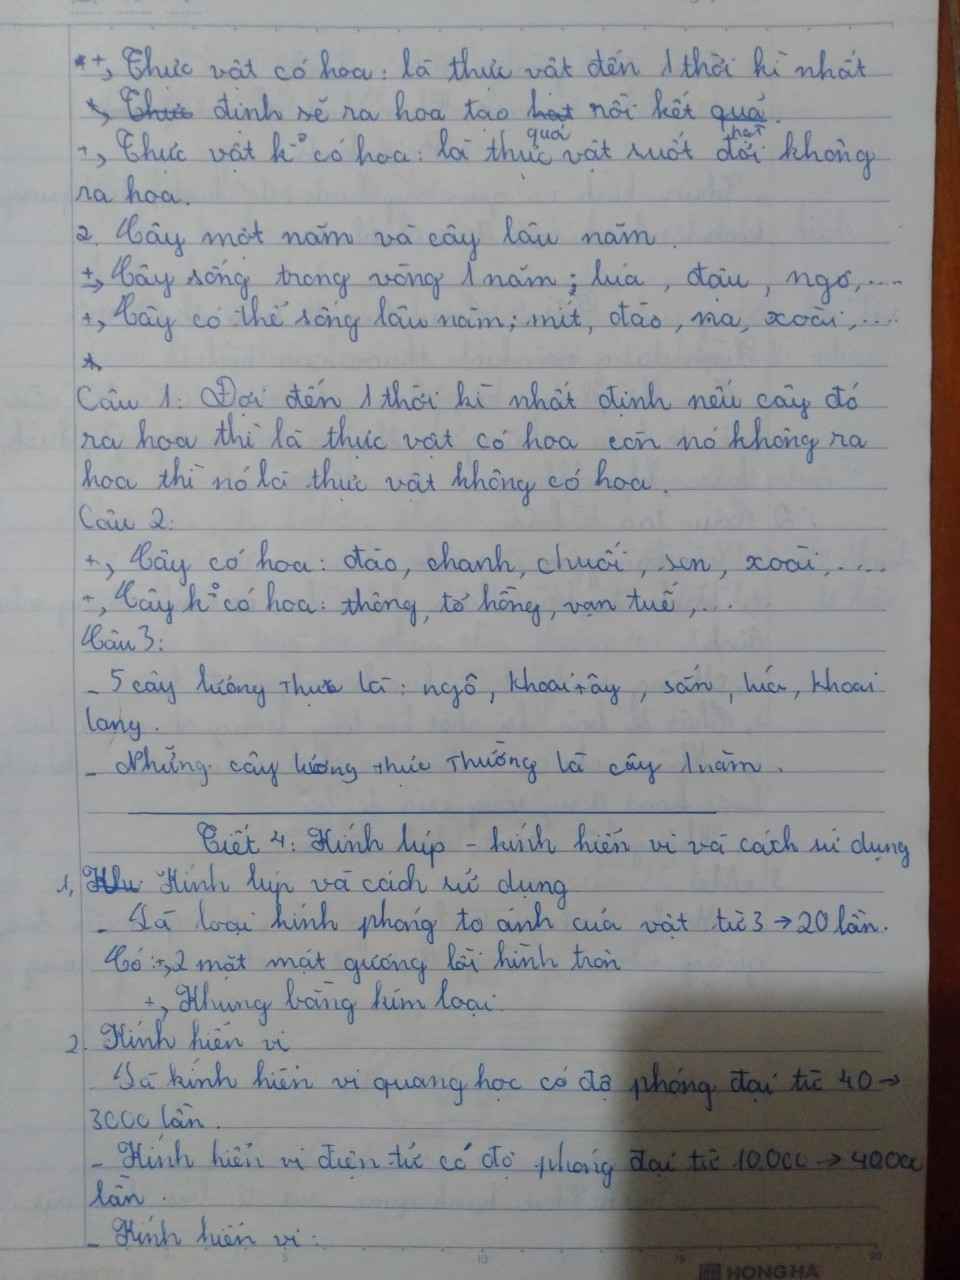 *+, Thực vật có hoa: là thực vật đến 1 thời kì nhất
*, Thực định sẽ ra hoa tạo hạt rồi kết quả.
quả hạt
+, Thực vật k° có hoa: là thực vật suốt đời không
ra hoa.
2. Cây một năm và cây lâu năm.
+, Cây sống trong vòng 1 năm; lúa, đậu, ngô,....
+, Cây có thể sống lâu năm; mít, đào, na, xoài,....
*
Câu 1: Đợi đến 1 thời kì nhất định nếu cây đó
ra hoa thì là thực vật có hoa còn nó không ra
hoa thì nó là thực vật không có hoa.
Câu 2:
+, Cây có hoa: đào, chanh, chuối, sen, xoài,....
+, Cây k° có hoa: thông, tơ hồng, vạn tuế,...
Câu 3:
- 5 cây lương thực là: ngô, khoai tây, sắn, lúa, khoai
lang.
- Những cây lương thực thường là cây 1 năm.
Tiết 4: Kính lúp - kính hiển vi và cách sử dụng
1, Kính lúp và cách sử dụng
- Là loại kính phóng to ảnh của vật từ 3 → 20 lần.
Có: +, 2 mặt mát gương lồi hình tròn
+, Khung bằng kim loại.
2. Kính hiển vi
Là kính hiển vi quang học có độ phóng đại từ 40 →
3000 lần.
- Kính hiển vi điện tử có độ phóng đại từ 10.000 → 40.000
lần.
- Kính hiển vi:
5 10 15 20
HONG HA